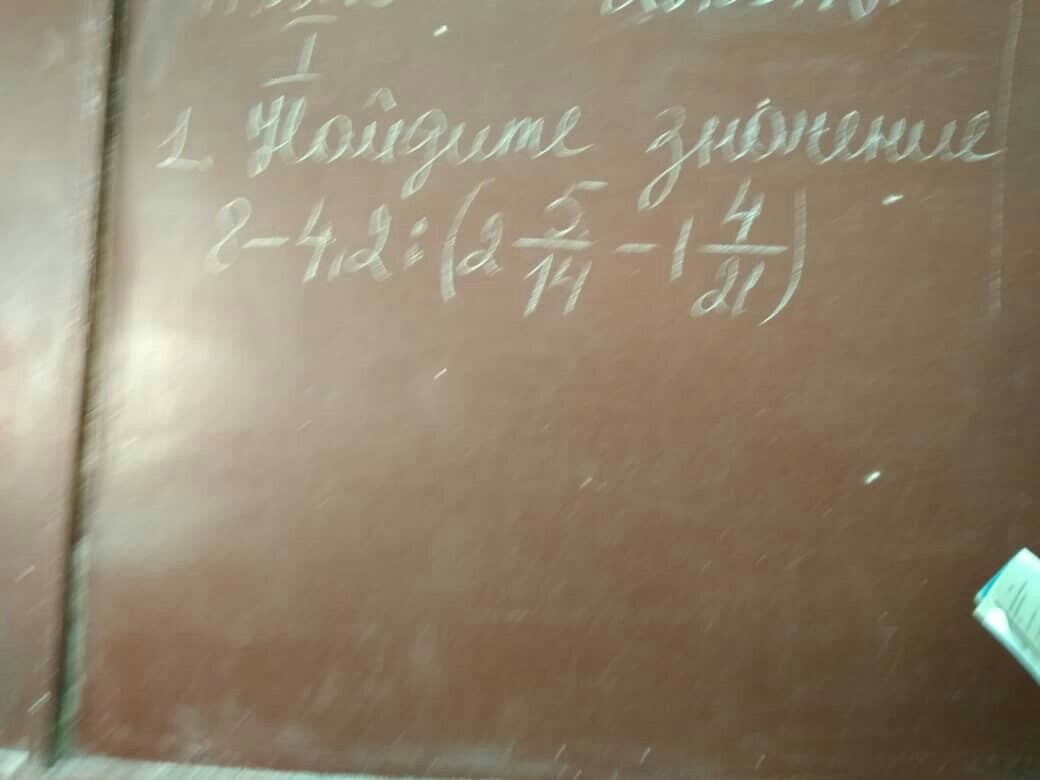 I
1. Найдите значение
8-4,2:(2 5/14 - 1 4/21)